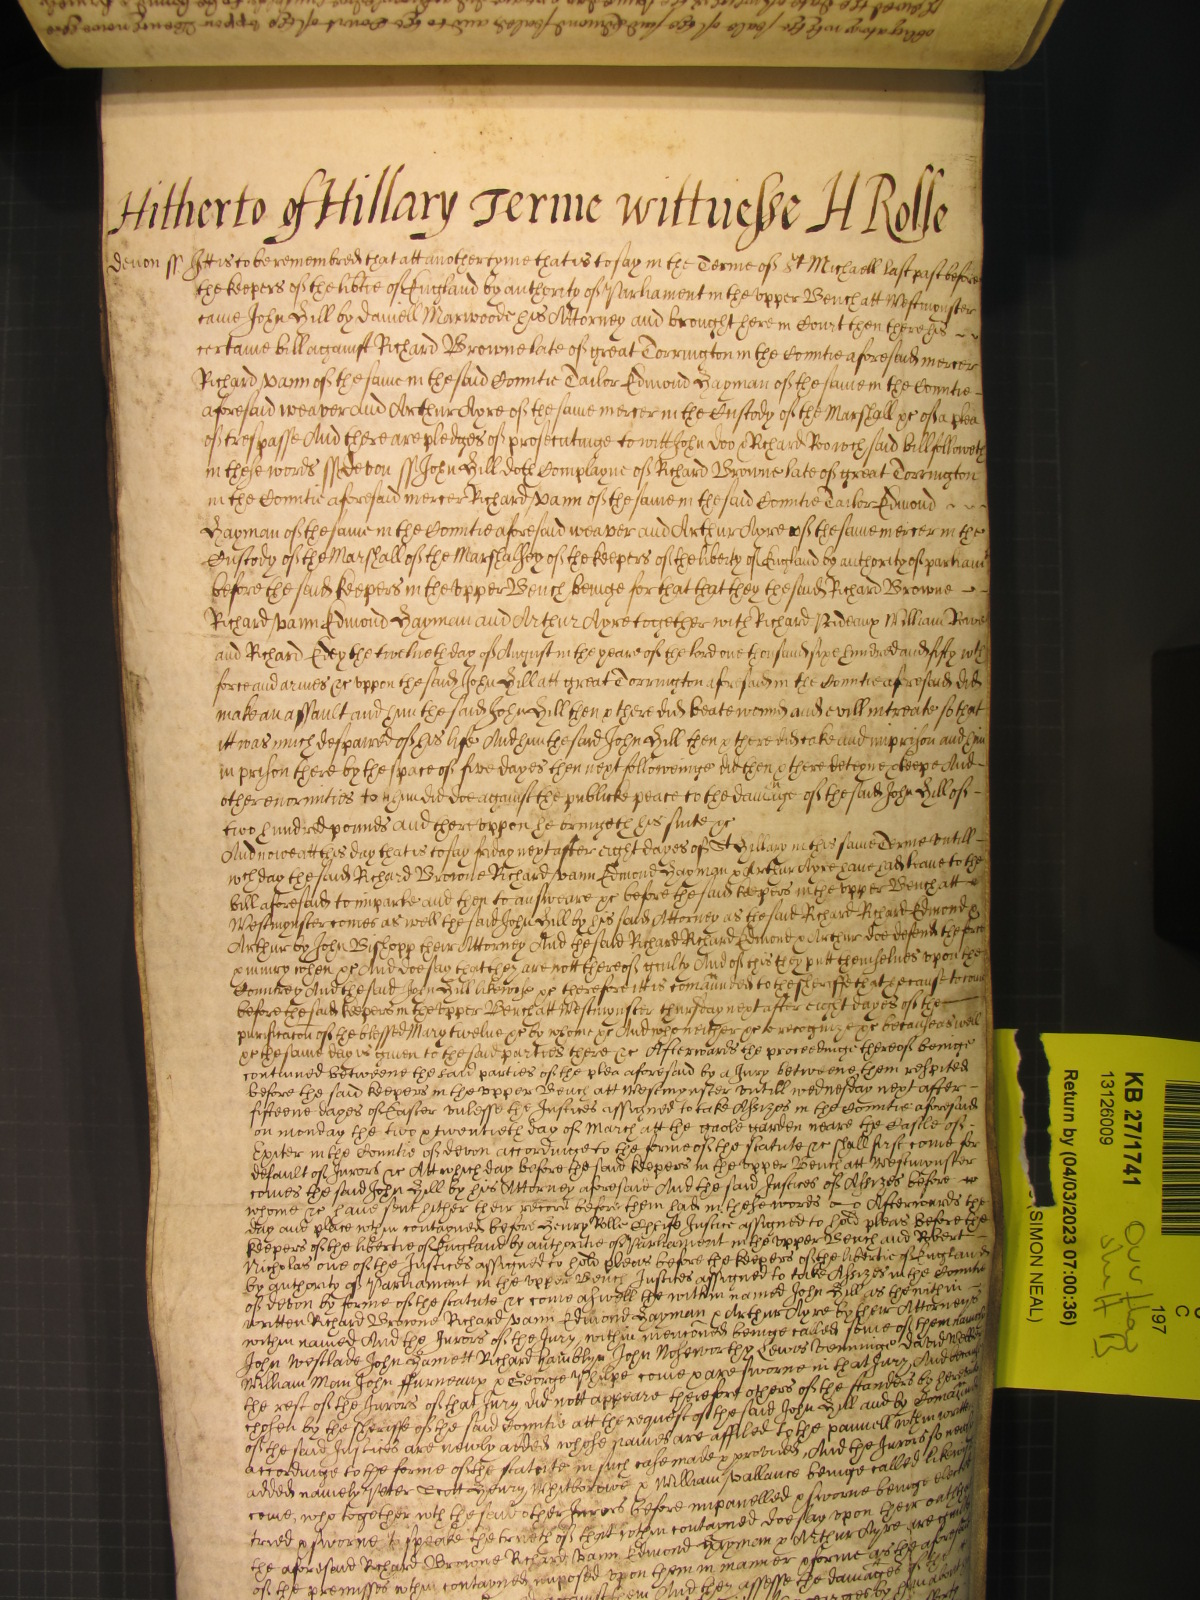 Hitherto of Hillary Terme wittnesse H Rolle
Devon ss Itt is to be remembred that att another tyme that is to say in the Terme of St Michaell last past before
the keepers of the libtie of England by authority of Parliament in the upper Bench att Westminster
came John Hill by Daniell Marwoode his Attorney and brought here in Court then there his
certaine bill against Richard Browne late of great Torrington in the Countie aforesaid mercer
Richard Vann of the same in the said Countie Tailor Edmond Hayman of the same in the Countie
aforesaid weaver and Arthur Ayre of the same mercer in the Custody of the Marshall &c of a plea
of trespasse And there are pledges of prosecutinge to witt John Doo & Richard Roo wch said bill followeth
in these words ss Devon ss John Hill doth Complayne of Richard Browne late of great Torrington
in the Countie aforesaid mercer Richard Vann of the same in the said Countie Tailor Edmond
Hayman of the same in the Countie aforesaid weaver and Arthur Ayre of the same mercer in the
Custody of the Marshall of the Marshalsey of the keepers of the liberty of England by authority of parliamt
before the said keepers in the upper Bench beinge for that that they the said Richard Browne
Richard Vann Edmond Hayman and Arthur Ayre together with Richard Prideaux William Rowe
and Richard Edey the twelueth day of August in the yeare of the lord one thousand sixe hundred and fifty wth
force and armes &c uppon the said John Hill att great Torrington aforesaid in the Countie aforesaid did
make an assault and him the said John Hill then & there did beate wound and evill intreate so that
itt was much despaired of his life And him the said John Hill then & there did take and imprison and him
in prison there by the space of five dayes then next followeinge did then & there deteyne & keepe And
other enormities to him did doe against the publicke peace to the damage of the said John Hill of
two hundred pounds and thereuppon he bringeth his suite &c
And nowe att this day that is to say friday next after eight dayes of St Hillary in this same Terme untill
wch day the said Richard Browne Richard Vann Edmond Hayman & Arthur Ayre have had leave to the
bill aforesaid to imparle and then to answeare &c before the said keepers in the upper Bench att
Westminster comes as well the said John Hill by his said Attorney as the said Richard Richard Edmond &
Arthur by John Bishopp their Attorney And the said Richard Richard Edmond & Arthur doe defend the force
& iniury when &c And doe say that they are nott thereof guilty And of this they putt themselves upon the
Countrey And the said John Hill likewise &c therefore itt is comaunded to the sheriffe that he cause to come
before the said keepers in the upper Bench att Westminster thursday next after eight dayes of the
purificacon of the blessed Mary twelve &c by whome &c And who neither &c to recognize &c because as well
&c the same day is given to the said parties there &c Afterwards the proceedinge thereof beinge
continued betweene the said parties of the plea aforesaid by a Jury betweene them respited
before the said keepers in the upper Bench att Westminster untill wednesday next after
fifteene dayes of Easter unlesse the Justices assigned to take Assizes in the Countie aforesaid
on monday the two & twentieth day of March att the gaole garden neare the Castle of
Exiter in the Countie of Devon accordinge to the forme of the statute &c shall first come for
default of Jurors &c Att which day before the said keepers in the upper Bench att Westminster
comes the said John Hill by his Attorney aforesaid And the said Justices of Assizes before
whome &c have sent hither their record before them had in these words Afterwards the
day and place within contayned before Henry Rolle Chiefe Justice assigned to hold pleas before the
keepers of the libertie of England by authoritie of Parliament in the upper Bench and Robert
Nicholas one of the Justices assigned to hold pleas before the keepers of the libertie of England
by authority of Parliament in the upper Bench Justices assigned to take Assizes in the Countie
of Devon by forme of the statute &c come as well the within named John Hill as the within
written Richard Browne Richard Vann Edmond Hayman & Arthur Ayre by their Attorneys
within named And the Jurors of the Jury within mencioned beinge called some of them namely
John Westlade John Hamett Richard Hamblyn John Nosworthy Lewis David
William Man John ffurneaux & George Philpe come & are sworne in that Jury And because
the rest of the Jurors of that Jury did nott appeare therefore others of the standers by
chosen by the sheriffe of the said Countie att the request of the said John Hill and by Comaund
of the said Justices are newly added whose names are affiled to the pannell within written
accordinge to the forme of the statute in such case made & provided And the Jurors so newly
added namely Peter Scott Henry & William Vallance beinge called likewise
come, who together wth the said other Jurors before impanelled & sworne beinge elected
tried & sworne to speake the trueth of that within contayned doe say upon their oathe
the aforesaid Richard Browne Richard Vann Edmond Hayman & Arthur Ayre are guilty
of the premisses within contayned imposed upon them in manner & forme as the aforesaid
against them And they assesse the damages of the
KB 27/1741
13126009
Return by (04/03/2023 07:00:36)
(SIMON NEAL)
197
C